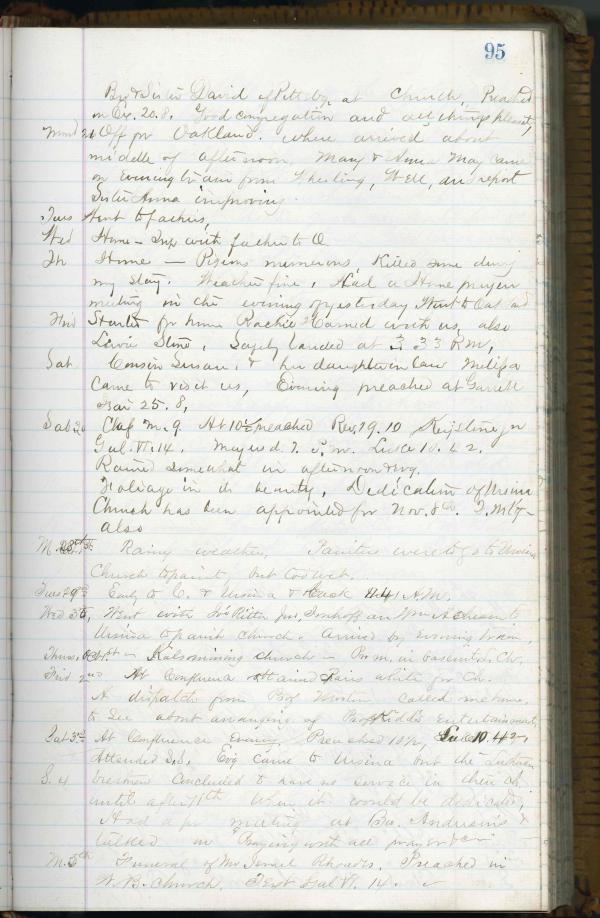 95
Bro & Sister David of Pittsbg, at Church, Preached
on Ex. 20.8. Good congregation and all things pleasant,
Mond 21 Off for Oakland. where arrived about
middle of afternoon, Mary & Anna May came
on Evening train from Wheeling, Well, and report
Sister Anna improving.
Tues Went to fathers,
Wed Home - with father to O
Th Home — Pigeons numerous Killed some during
my stay. Weather fine, Had a Home prayer
meeting in the evening of yesterday Went to Oak and
Frid Started for home Rachie with us, also
Stone, Safely landed at 3 33 P.M,
Sat Cousin Susan, & her daughter in law Melissa
came to visit us, Evening preached at Garrett
25.8,
Sab Clas m. 9. At 10½ preached Rev. 19.10 Keystone
Gal. VI.14. 7. P.M. Luke 10.42.
Rained somewhat in afternoon & Evg.
Foliage in its beauty, Dedication of Ursina
Church has been appointed for Nov. 8th.
also
M. 28th Rainy weather. Painters were to go to Ursina
Church to paint, but too wet.
Tues 29th Early to C. & Ursina & back 11 41 A.M.
Wed 30, Went with Jos Ritter Jno, Imhoff an Wm Acheson to
Ursina to paint church. Arrived by evening train,
Thurs, Oct. 1st — Kalsomining church — Pr m. in basement Ch,
Frid 2nd At Confluence
A dispatch from Prof called me home,
to see about arranging of Prof Kidd's Entertainments,
Sat 3rd At Confluence Evening. Preached Luke 10.42
Attended S.S, Evg came to Ursina but the Lutheran
S. 4 brethren Concluded to have no service in their ch.
until after 11th when it would be dedicated,
Had a pr meeting at Bro. Anderson's &
talked on "Praying with all prayer &c"
M. 5th Funeral of Mr Israel Rhoads. Preached in
W. B. Church, Text Gal VI. 14.